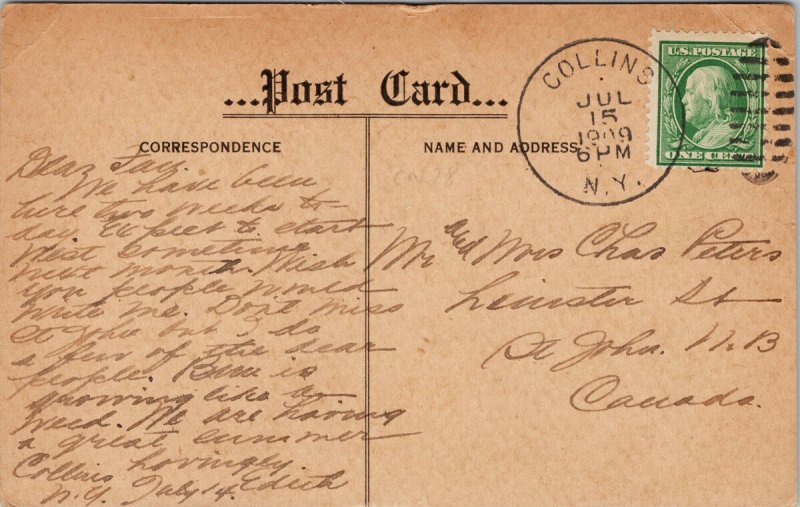 ...Post Card...
CORRESPONDENCE
NAME AND ADDRESS
COLLINS
JUL
15
1909
6 PM
N.Y.
U.S. POSTAGE
ONE CE
Dear
We have been
here two weeks to-
day. Expect to start
West sometime
next month. Wish
you people would
write me. Dont miss
St John but I do
a few of the dear
people. is
growing like a
weed. We are having
a great summer
Lovingly
Edith
Collins
N.Y. July 14.
Mr and Mrs Chas Peters
Leinster St
St John. N.B
Canada.